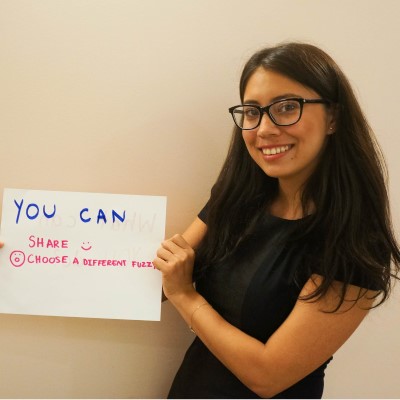 YOU CAN
SHARE
CHOOSE A DIFFERENT FUZZY